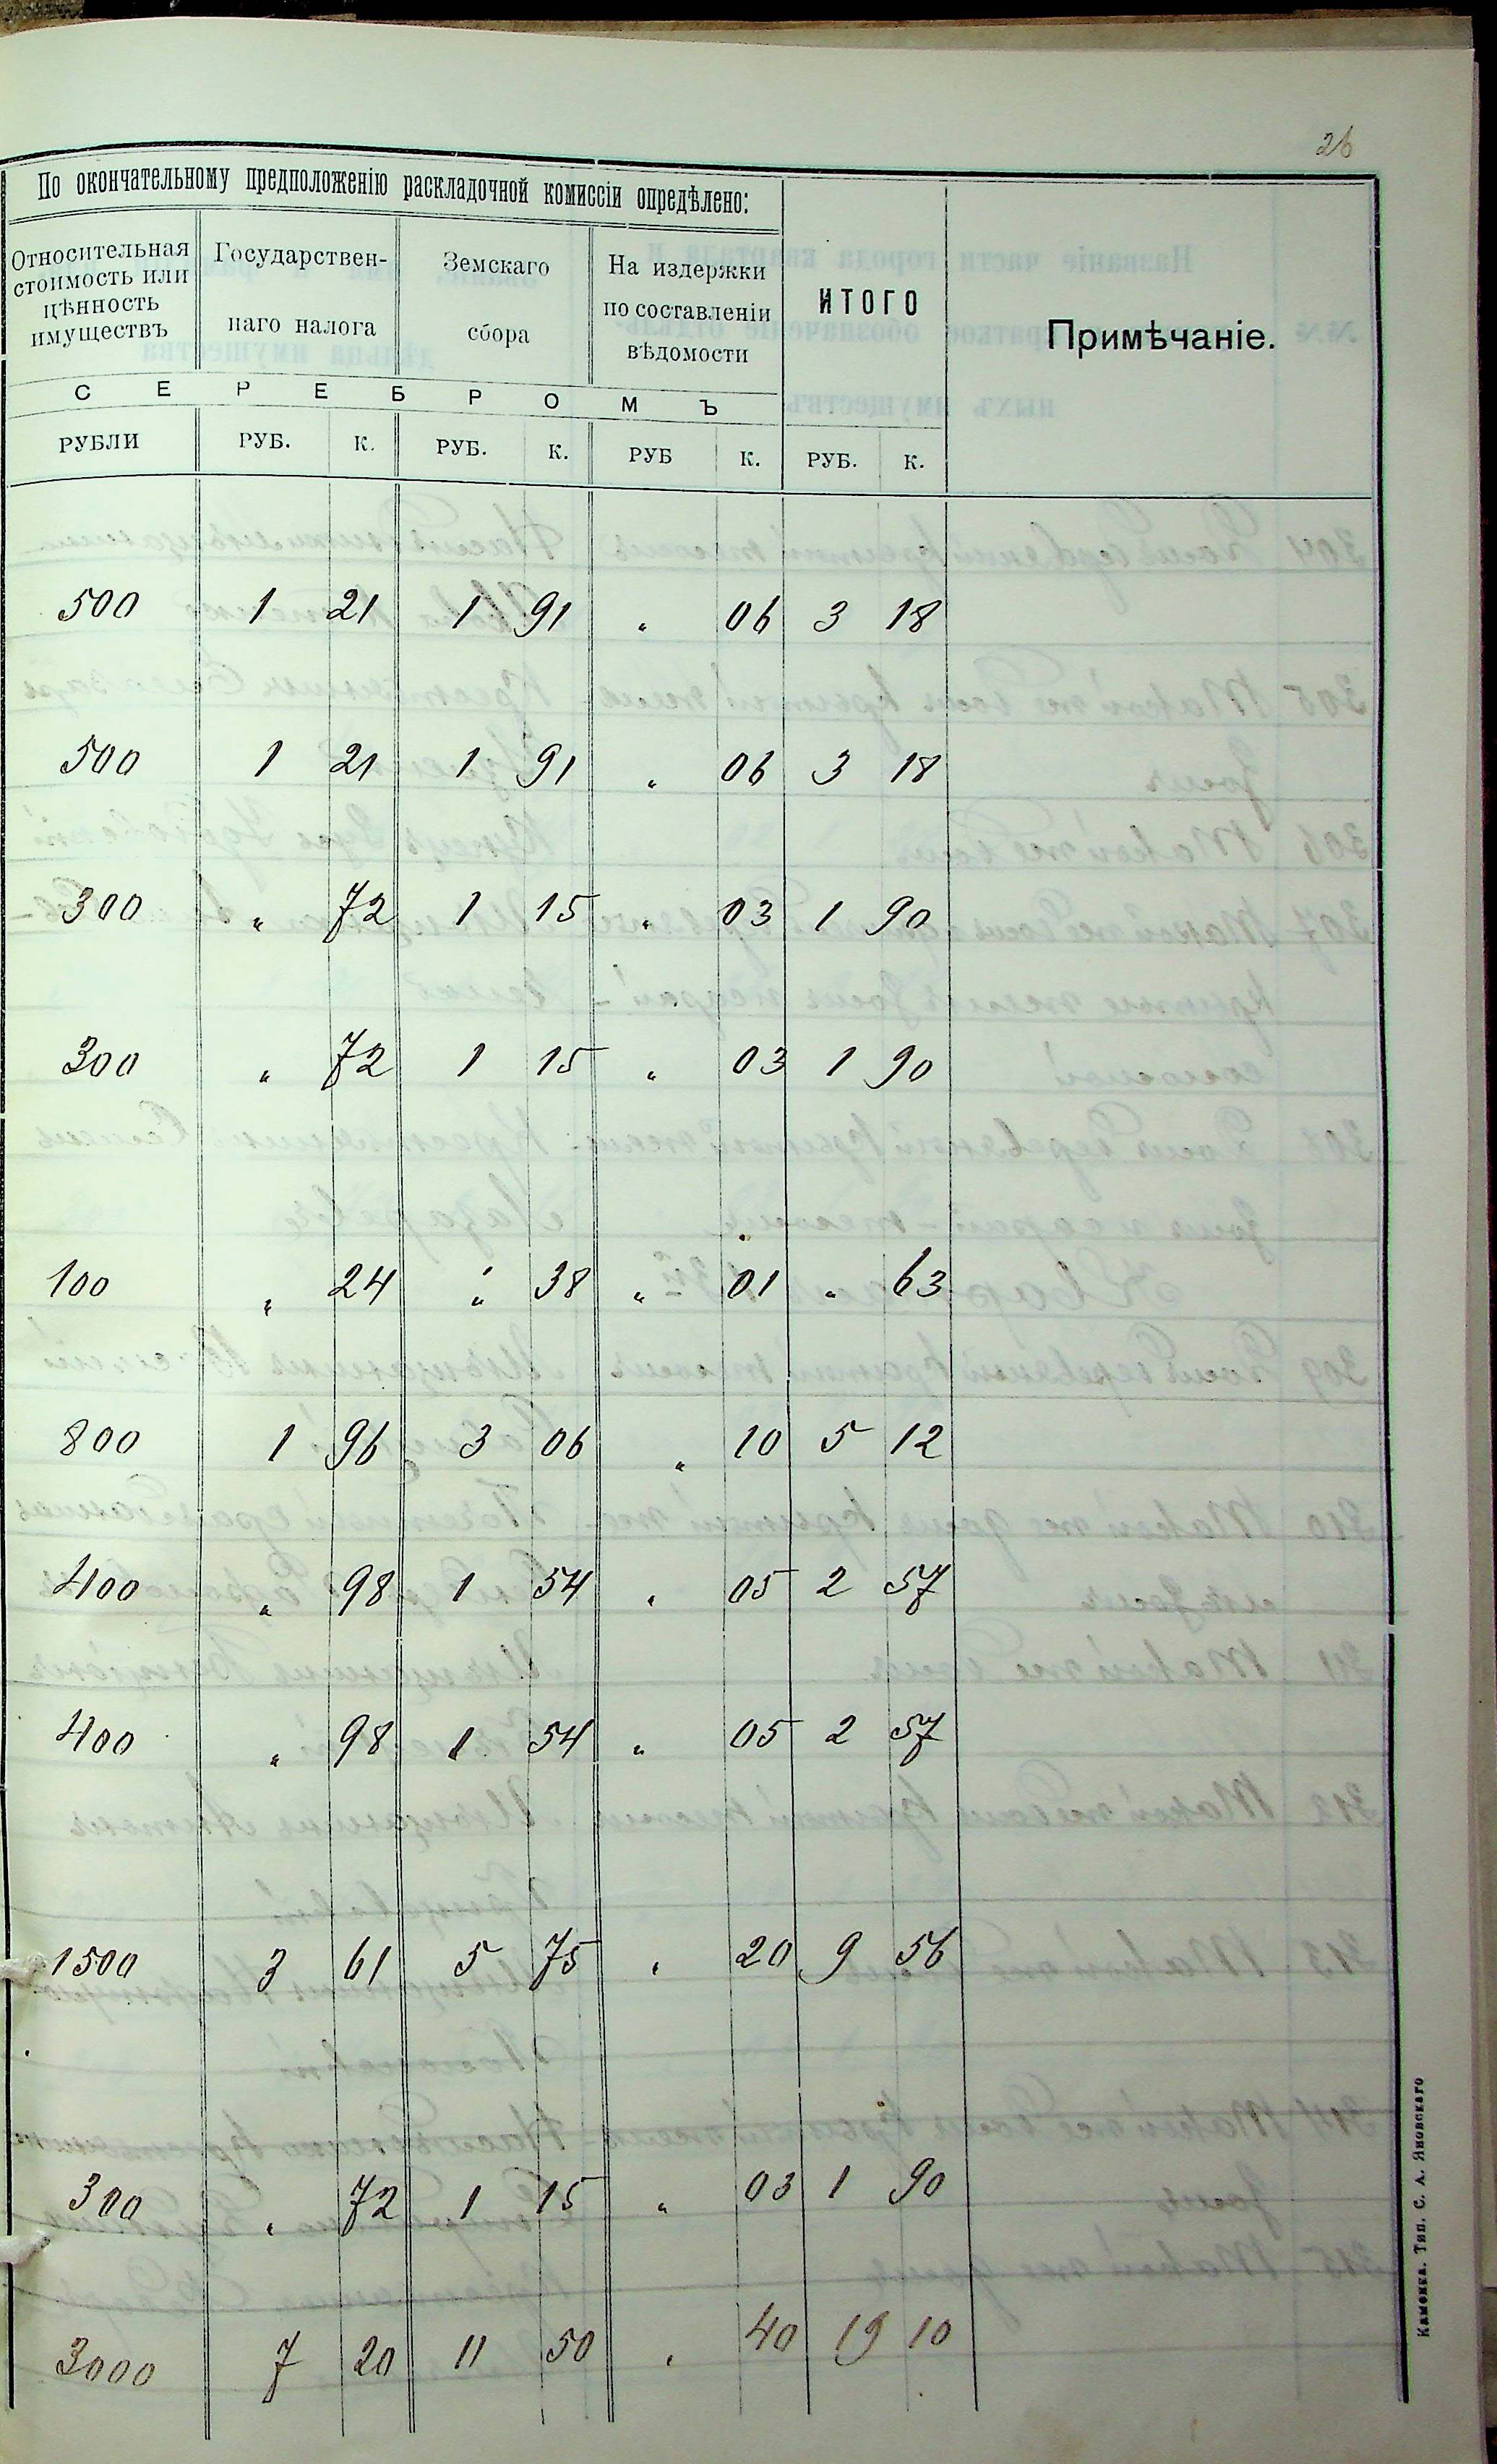 26
По окончательному предположенію раскладочной комиссіи опредѣлено:
Относительная стоимость или цѣнность имуществъ
Государствен-наго налога
Земскаго сбора
На издержки по составленіи вѣдомости
ИТОГО
Примѣчаніе.
С Е Р Е Б Р О М Ъ
РУБЛИ РУБ. К. РУБ. К. РУБ К. РУБ. К.
500 1 21 1 91 „ 06 3 18
500 1 21 1 91 „ 06 3 18
300 „ 72 1 15 „ 03 1 90
300 „ 72 1 15 „ 03 1 90
100 „ 24 „ 38 „ 01 „ 63
800 1 96 3 06 „ 10 5 12
400 „ 98 1 54 „ 05 2 57
400 „ 98 1 54 „ 05 2 57
1500 3 61 5 75 „ 20 9 56
300 „ 72 1 15 „ 03 1 90
3000 7 20 11 50 „ 40 19 10
Каменка. Тип. С. А. Яновскаго